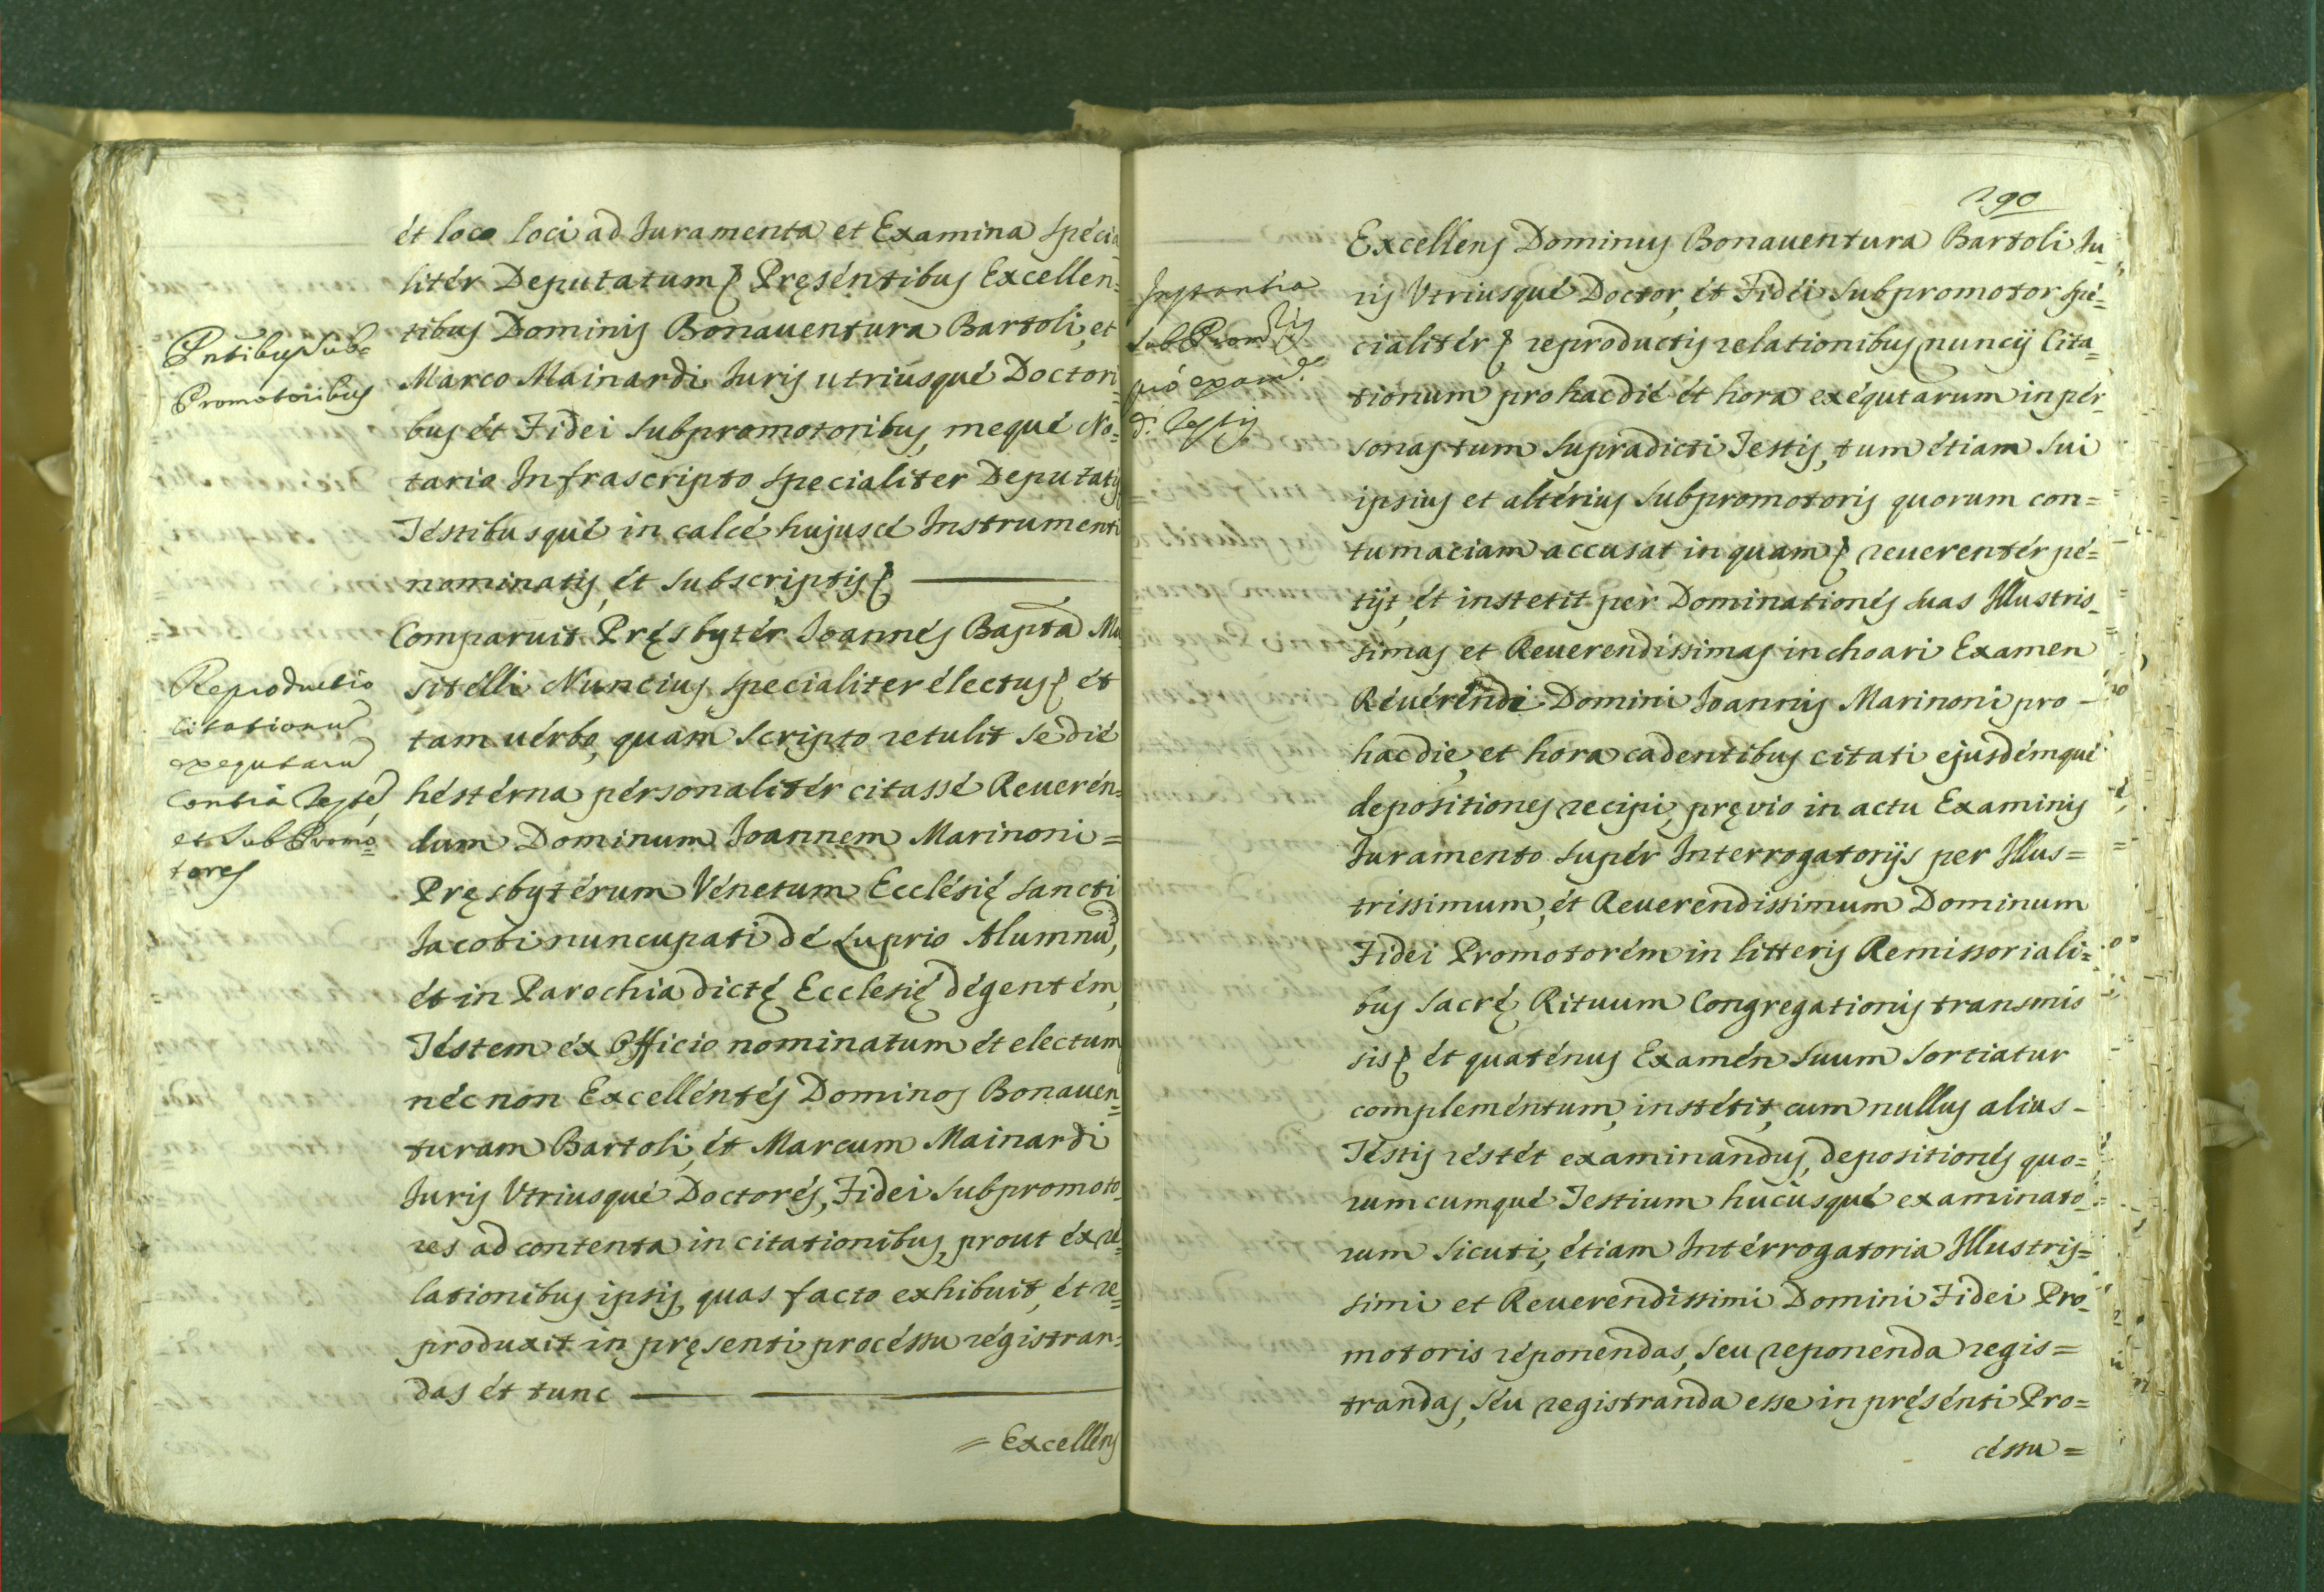 et loco loci ad Juramenta et Examina specia
liter Deputatum Pręsentibus Excellen=
tibus Dominis Bonauentura Bartoli, et
Marco Mainardi Juris utriusque Doctori=
bus et Fidei Subpromotoribus, meque No=
tario Infrascripto specialiter Deputatis
Testibusque in calce hujusce Instrumenti
nominatis, et subscriptis
Comparuit Pręsbyter Joannes Bapta Mu
sitelli Nuncius specialiter electus et
tam uerbo, quam scripto retulit se die
hesterna personaliter citasse Reueren=
dum Dominum Joannem Marinoni =
Pręsbyterum Venetum Ecclesię Sancti
Jacobi nuncupati de Luprio Alumnu,
et in Parochia dictę Ecclesię degentem,
Testem ex Officio nominatum et electum
nec non Excellentes Dominos Bonauen=
turam Bartoli, et Marcum Mainardi
Juris Vtriusque Doctores, Fidei Subpromoto_
res ad contenta in citationibus, prout ex re=
lationibus ipsis, quas facto exhibuit, et re=
produxit in pręsenti processu registran=
das et tunc
= Excellens
Pntibus Sub=
Promotoribus
Reproductio
Citationu
exequtaru
Contra Teste,
et SubPromo=
tores
290
Instantia
SubPromris
pro exam.e
d. Testis
Excellens Dominus Bonauentura Bartoli Ju_
ris Vtriusque Doctor, et Fidei Subpromotor spe=
cialiter reproductis relationibus nuncij Cita=
tionum pro hac die et hora exequtarum in per_
sonas tum supradicti Testis, tum etiam sui
ipsius et alterius Subpromotoris quorum con=
tumaciam accusat in quam reuerenter pe=
tijt, et instetit per Dominationes suas Illustris_
simas et Reuerendissimas inchoari Examen
Reuerendi Domini Joannis Marinoni pro -
hac die, et hora cadentibus citati ejusdemque
depositiones recipi, pręvio in actu Examinis
Juramento super Interrogatorijs per Illus=
trissimum, et Reuerendissimum Dominum
Fidei Promotorem in litteris Remissoriali=
bus Sacrę Rituum Congregationis transmis
sis et quatenus Examen suum sortiatur
complementum, instetit, cum nullus alius -
Testis restet examinandus, depositiones quo=
rumcumque Testium hucusque examinato_
rum sicuti, etiam Interrogatoria Illustris=
simi et Reuerendissimi Domini Fidei Pro_
motoris reponendas, seu reponenda regis=
trandas, seu registranda esse in pręsenti Pro=
cessu =